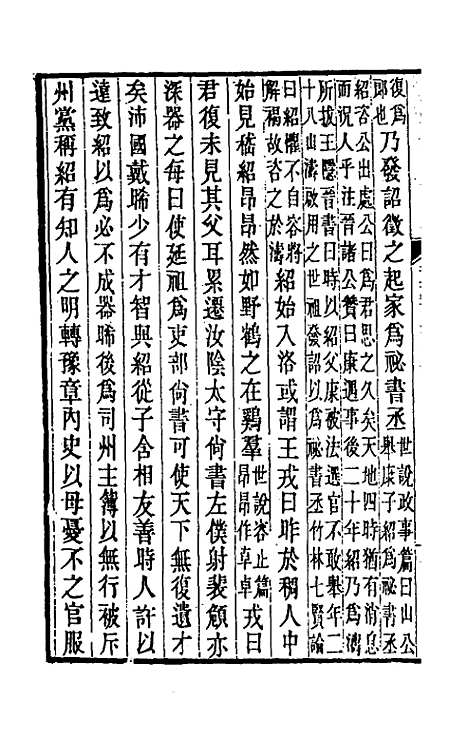 復爲
郎也
乃發詔徵之起家爲祕書丞
世說政事篇曰山公
舉康子紹爲祕書丞
紹咨公出處公曰爲君思之久矣天地四時猶有消息
而況人乎注晉諸公贊曰康遇事後二十年紹乃爲濤
所拔王隱晉書曰時以紹父康被法選官不敢舉年二
十八山濤啟用之世祖發詔以爲祕書丞竹林七賢論
曰紹懼不自容將
解褐故咨之於濤
紹始入洛或謂王戎曰昨於稠人中
始見嵇紹昂昂然如野鶴之在鷄羣
世說容止篇
昂昂作卓卓
戎曰
君復未見其父耳累遷汝陰太守尙書左僕射裴頠亦
深器之每曰使延祖爲吏部尙書可使天下無復遺才
矣沛國戴晞少有才智與紹從子含相友善時人許以
遠致紹以爲必不成器晞後爲司州主簿以無行被斥
州黨稱紹有知人之明轉豫章內史以母憂不之官服